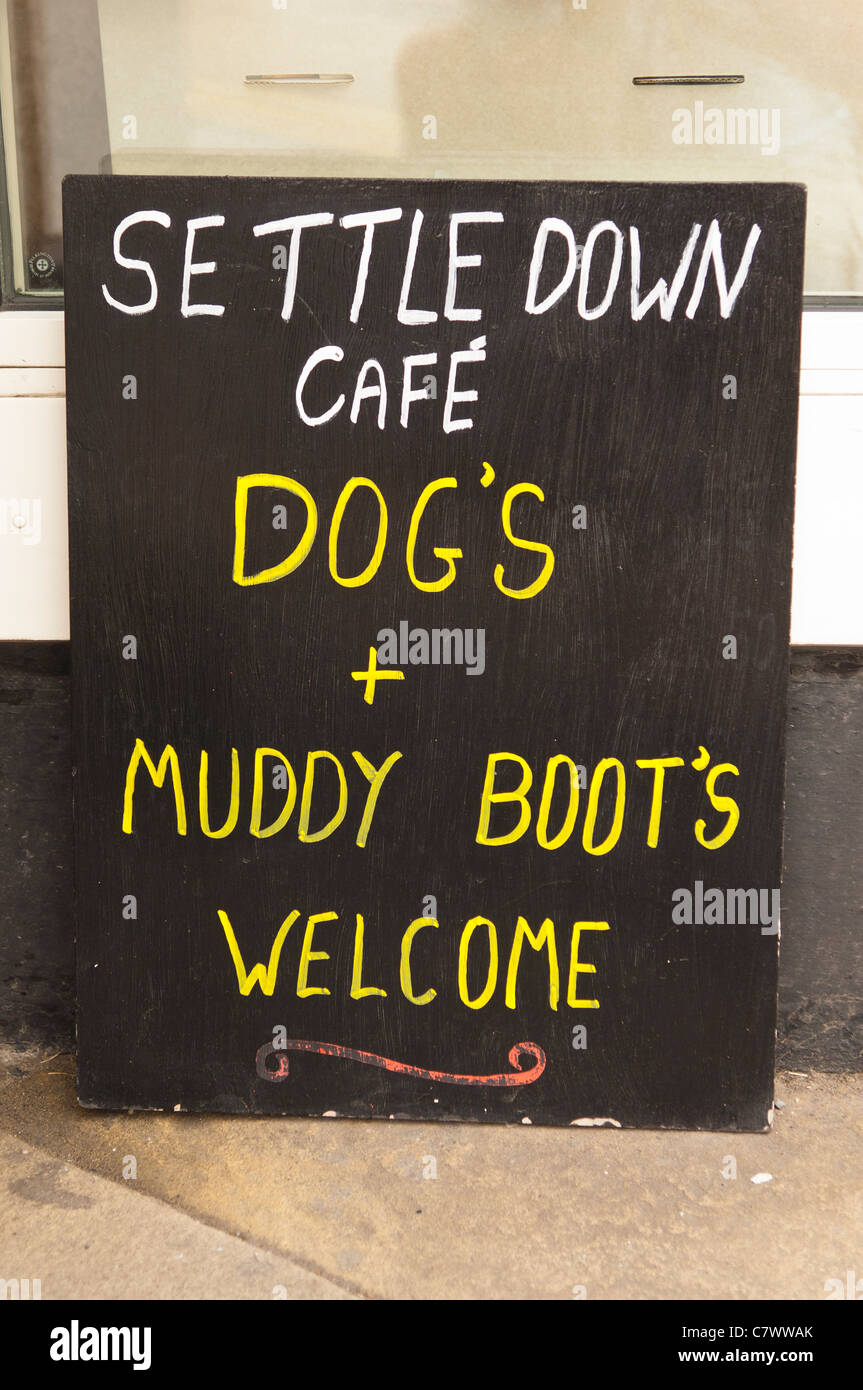 SETTLE DOWN
CAFÉ
DOG'S
+
MUDDY BOOT'S
WELCOME
alamy
Image ID: C7WWAK
www.alamy.com